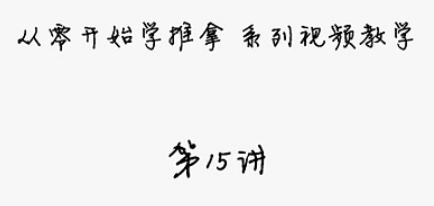 从零开始学推拿 系列视频教学
第15讲